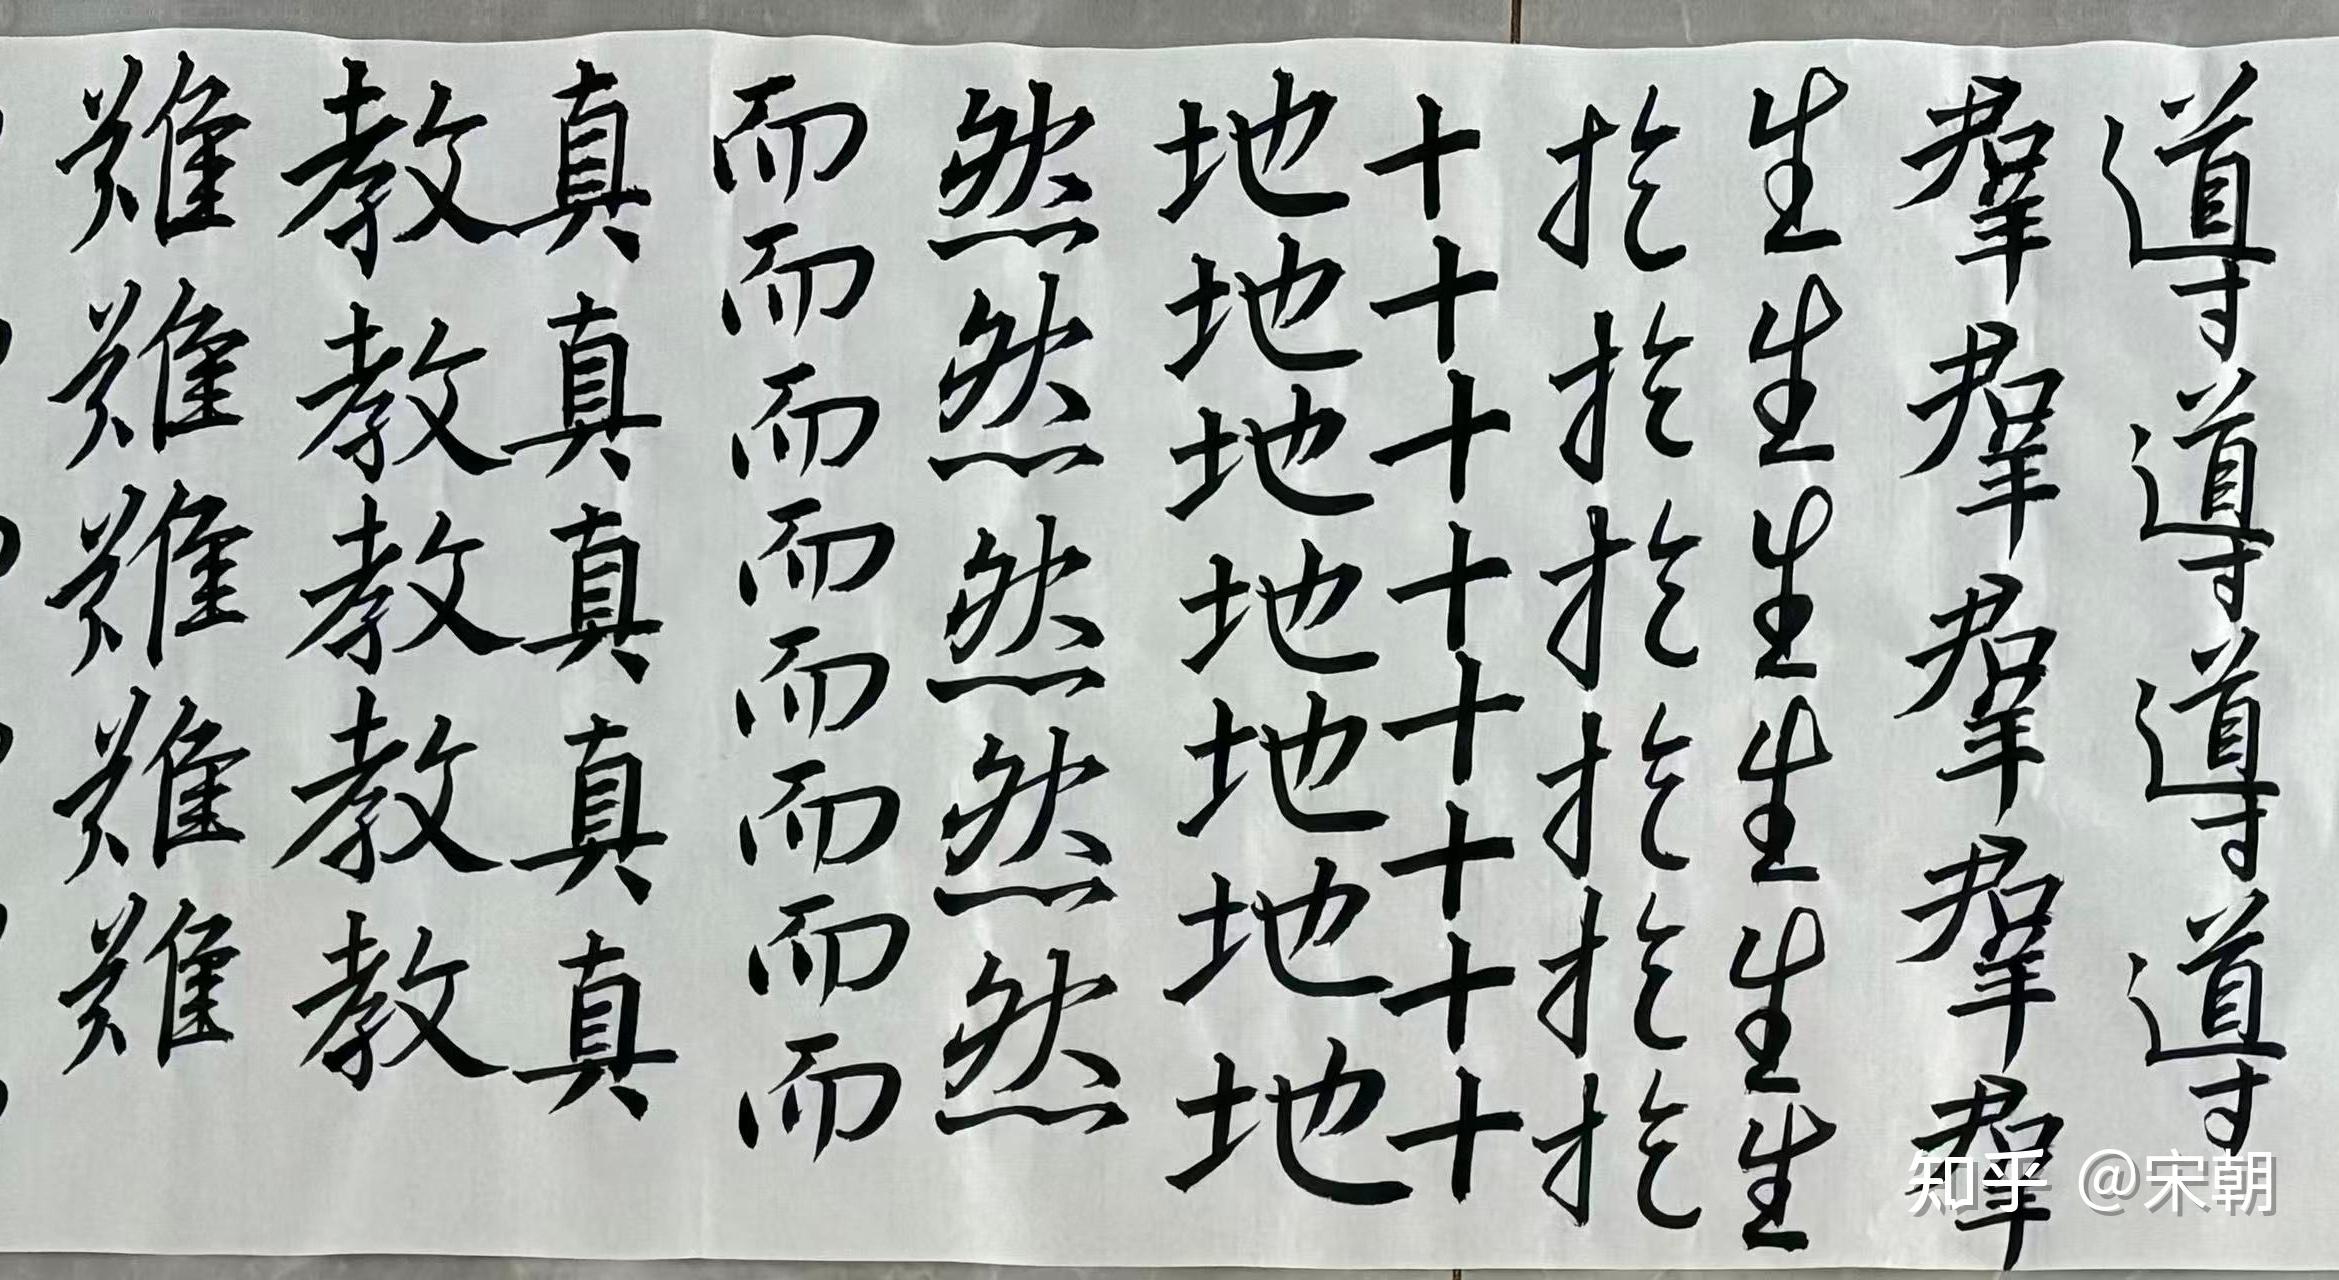 導導導導
羣羣羣羣羣
生生生生生生
於於於於於於
十十十十十十十十
地地地地地地地
然然然然然
而而而而而而而而
真真真真真
教教教教教
難難難難難
知乎 @宋朝